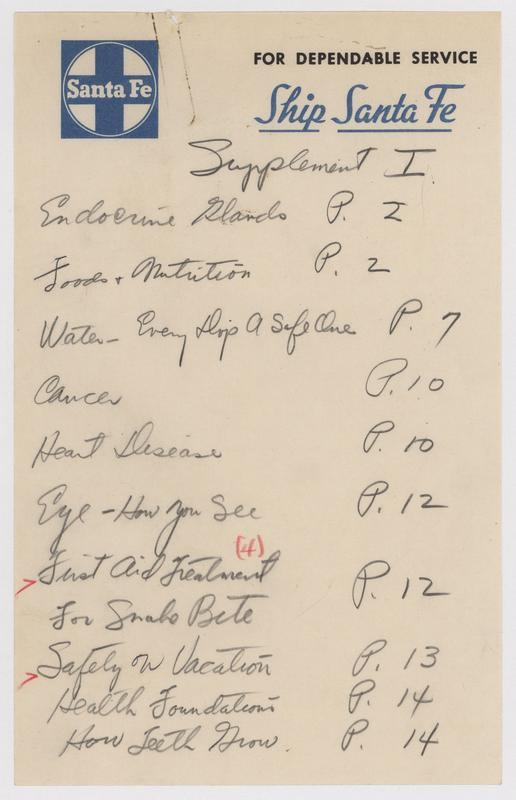 Santa Fe
FOR DEPENDABLE SERVICE
Ship Santa Fe
Supplement I.
Endocrine Glands P. I
Foods + Nutrition P. 2
Water - Every Drop A Safe One P. 7
Cancer P. 10
Heart Disease P. 10
Eye - How You See P. 12
(4)
> First Aid Treatment P. 12
For Snake Bite
> Safety on Vacation P. 13
Health Foundations P. 14
How Teeth Grow. P. 14